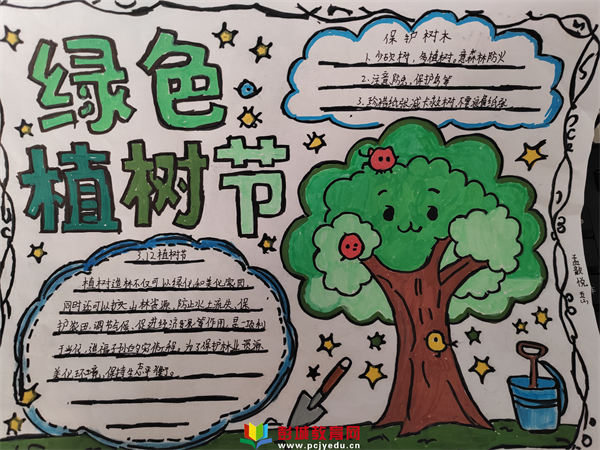 绿色
植树节
保护树木
1、少砍树,多植树,意森林防火
2、注意防虫,保护鸟等
3、珍惜纸张,减卡砍树,不要浪费纸张
3.12植树节
植树造林不仅可以绿化和美化家园
同时还可以扩大山林资源、防止水土流失、保
护农田、调节气候、促进经济发展等作用,是一项利
于当代、造福子孙的宏伟工程。为了保护林业资源、
美化环境,保持生态平衡。
孟歆悦
彭城教育网
www.pcjyedu.cn